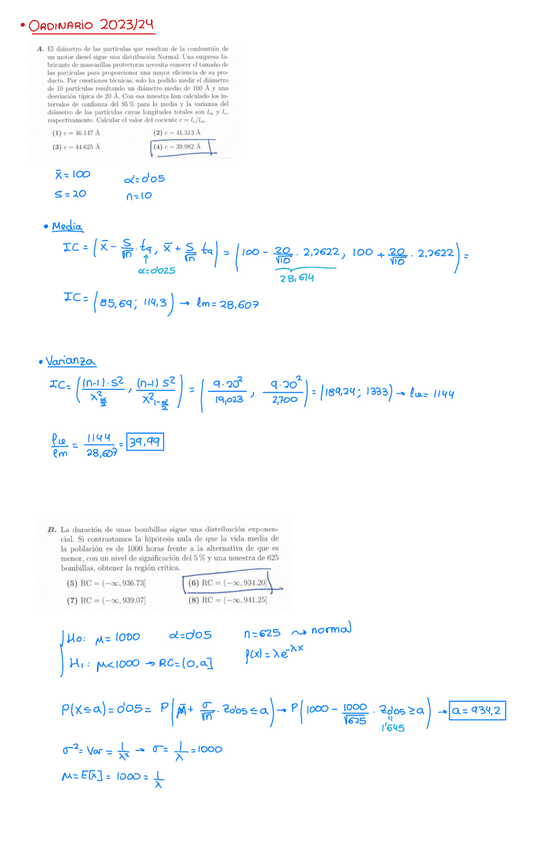 • ORDINARIO 2023/24
A. El diámetro de las partículas que resultan de la combustión de
un motor diesel sigue una distribución Normal. Una empresa fa-
bricante de mascarillas protectoras necesita conocer el tamaño de
las partículas para proporcionar una mayor eficiencia de su pro-
ducto. Por cuestiones técnicas, solo ha podido medir el diámetro
de 10 partículas resultando un diámetro medio de 100 Å y una
desviación típica de 20 Å. Con esa muestra han calculado los in-
tervalos de confianza del 95 % para la media y la varianza del
diámetro de las partículas cuyas longitudes totales son lₘ y lᵥ,
respectivamente. Calcular el valor del cociente c = lᵥ/lₘ.
(1) c = 46.147 Å (2) c = 41.313 Å
(3) c = 44.625 Å (4) c = 39.982 Å
x̄ = 100 α = 0'05
S = 20 n = 10
• Media
IC = (x̄ - S/√n · tα, x̄ + S/√n tα) = (100 - 20/√10 · 2,2622, 100 + 20/√10 · 2,2622) =
α=0'025 28,614
IC = (85,69; 114,3) → lm = 28,607
• Varianza
IC = ((n-1)·S²/χ²α/2, (n-1) S²/χ²1-α/2) = (9·20²/19,023, 9·20²/2,700) = (189,24; 1333) → lσ² = 1144
lσ²/lm = 1144/28,607 = 39,99
B. La duración de unas bombillas sigue una distribución exponen-
cial. Si contrastamos la hipótesis nula de que la vida media de
la población es de 1000 horas frente a la alternativa de que es
menor, con un nivel de significación del 5 % y una muestra de 625
bombillas, obtener la región crítica.
(5) RC = (−∞, 936.73] (6) RC = (−∞, 934.20]
(7) RC = (−∞, 939.07] (8) RC = (−∞, 941.25]
H₀: μ = 1000 α = 0'05 n = 625 ⇝ normal
H₁: μ < 1000 → RC = (0, a] f(x) = λe^-λx
P(X ≤ a) = 0'05 = P(μ + σ/√n · Z0'05 ≤ a) → P(1000 - 1000/√625 · Z0'05 ≥ a) → a = 934,2
1'645
σ² = Var = 1/λ² → σ = 1/λ = 1000
μ = E[x] = 1000 = 1/λ